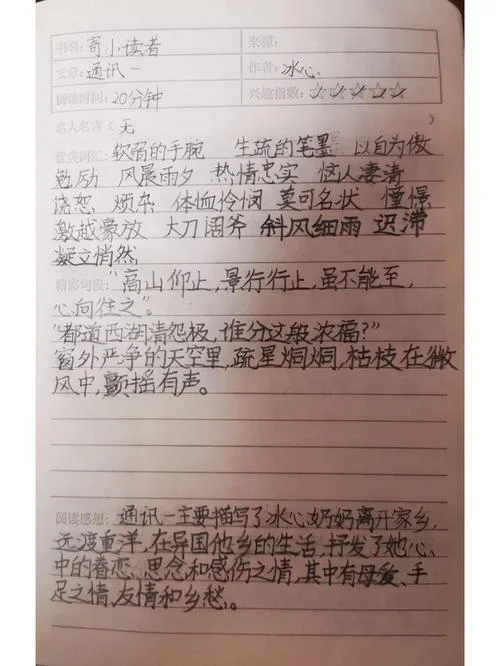 书名:寄小读者 来源:
文章:通讯一 作者:冰心
阅读时间:20分钟 兴趣指数:☆☆☆☆☆
名人名言(无
优美词汇:软弱的手腕 生疏的笔墨 以自为傲
勉励 风晨雨夕 热情忠实 恼人凄清
饶恕 烦杂 体恤怜悯 莫可名状 憧憬
激越豪放 大刀阔斧 斜风细雨 迟滞
凝立悄然
精彩句段:"高山仰止,景行行止,虽不能至,
心向往之"。
"都道西湖清怨极,谁分这般浓福?"
窗外严净的天空里,疏星炯炯,枯枝在微
风中,颤摇有声。
阅读感想:通讯一主要描写了冰心奶奶离开家乡,
远渡重洋,在异国他乡的生活,抒发了她心
中的眷恋、思念和感伤之情,其中有母爱、手
足之情,友情和乡愁。